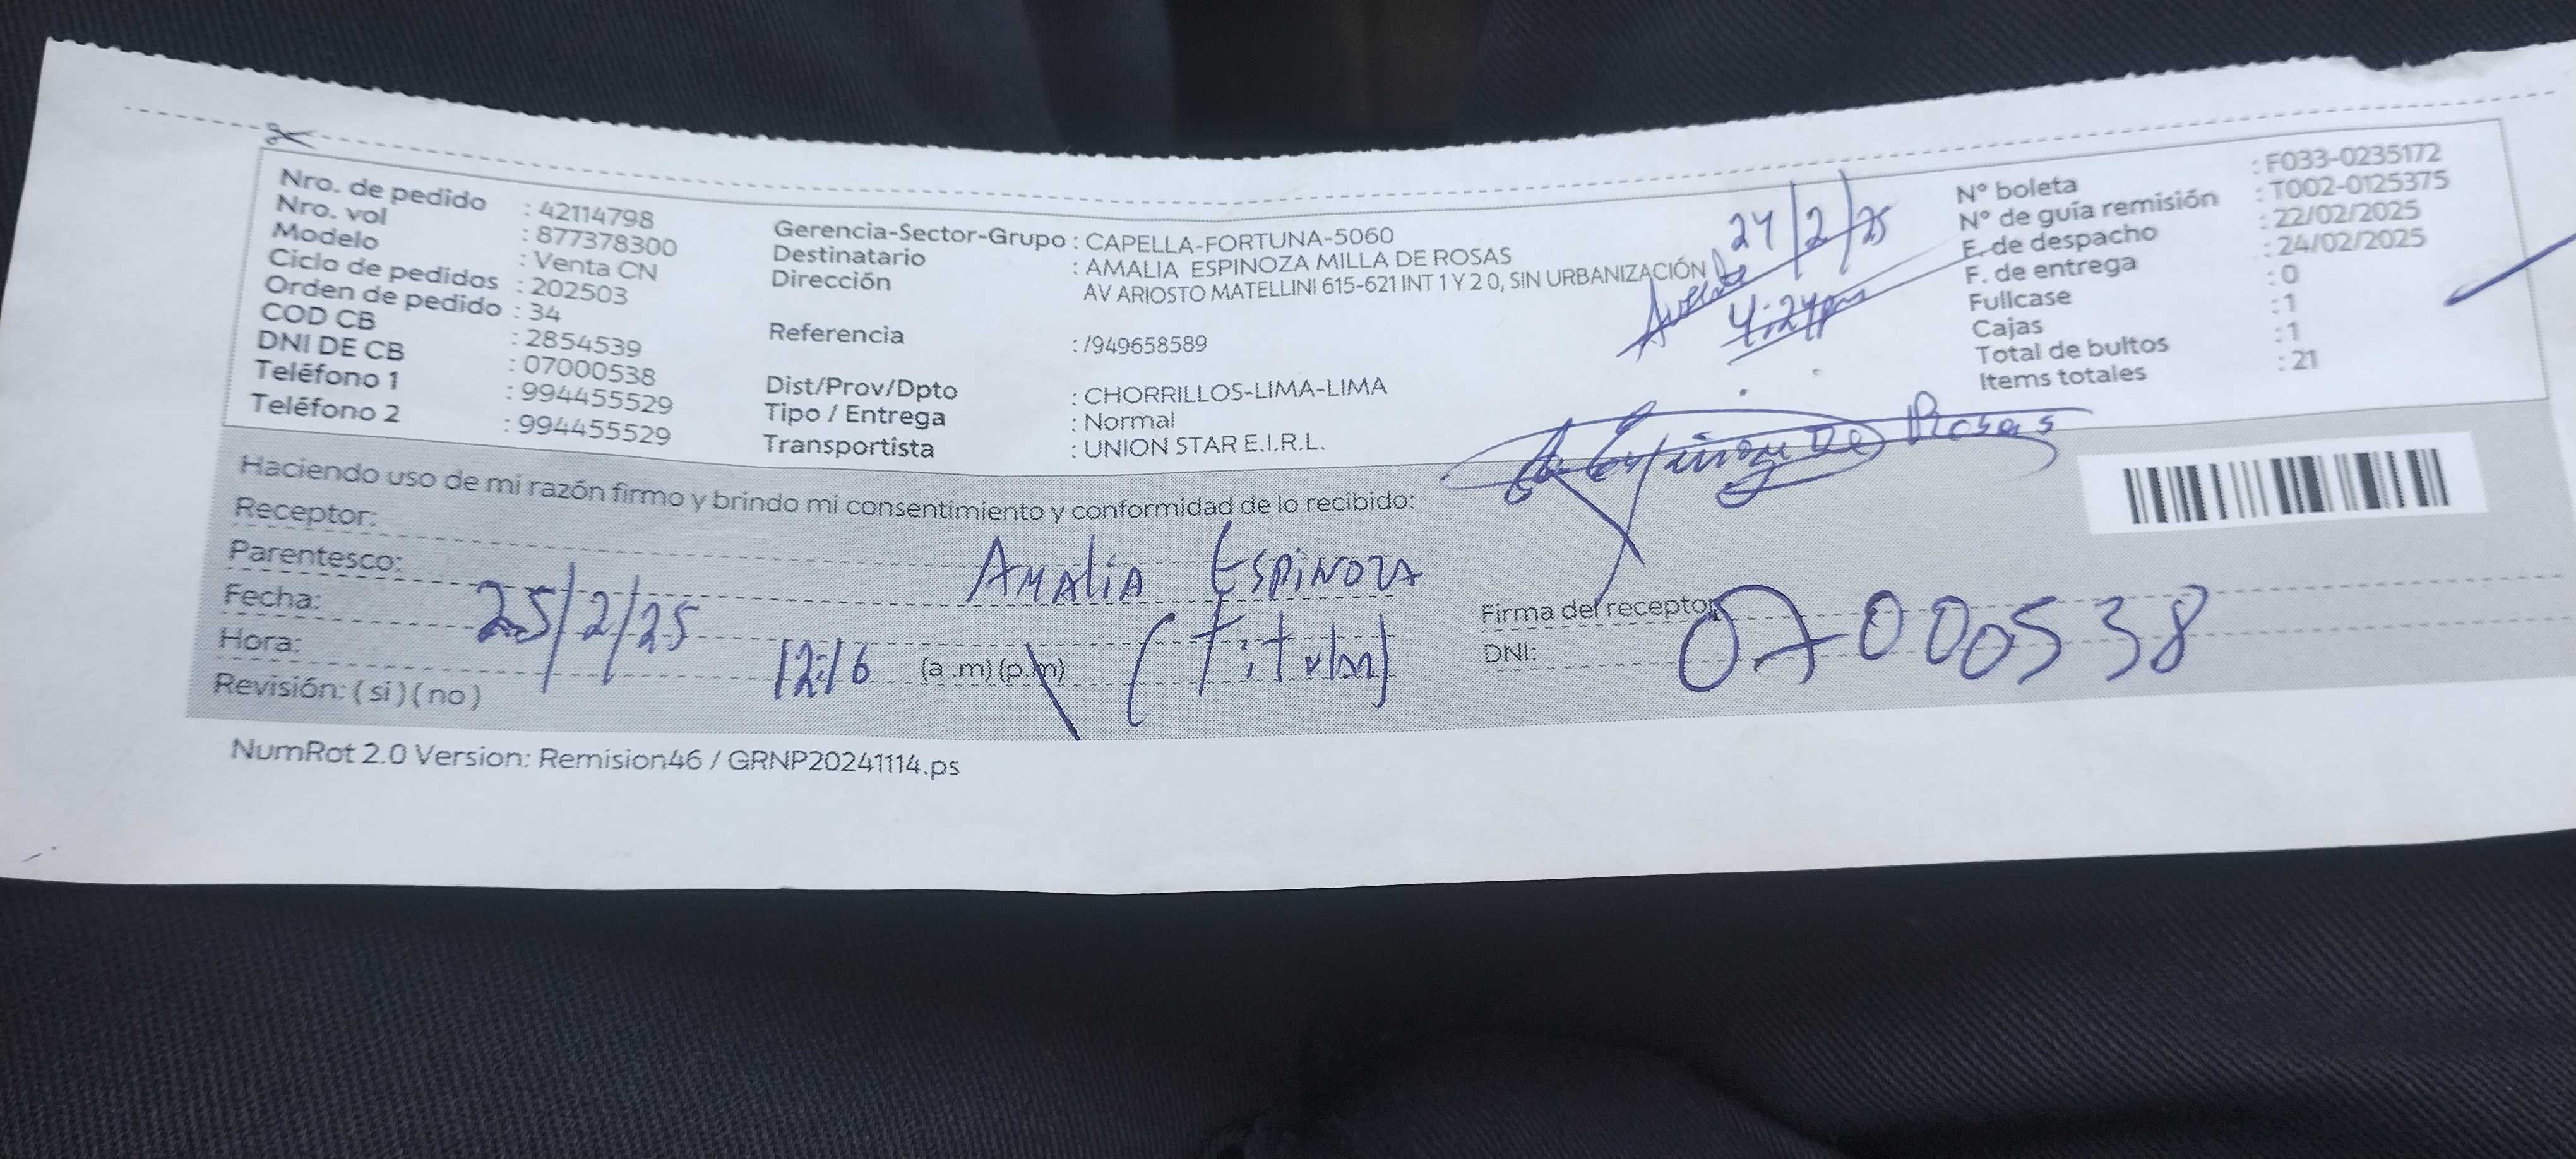 Nro. de pedido : 42114798
Nro. vol : 877378300
Modelo : Venta CN
Ciclo de pedidos : 202503
Orden de pedido : 34
COD CB : 2854539
DNI DE CB : 07000538
Teléfono 1 : 994455529
Teléfono 2 : 994455529
Gerencia-Sector-Grupo : CAPELLA-FORTUNA-5060
Destinatario : AMALIA ESPINOZA MILLA DE ROSAS
Dirección AV ARIOSTO MATELLINI 615-621 INT 1 Y 2 0, SIN URBANIZACIÓN
Referencia : /949658589
Dist/Prov/Dpto : CHORRILLOS-LIMA-LIMA
Tipo / Entrega : Normal
Transportista : UNION STAR E.I.R.L.
24/2/25
4:24pm
N° boleta : F033-0235172
N° de guía remisión : T002-0125375
F. de despacho : 22/02/2025
F. de entrega : 24/02/2025
Fullcase : 0
Cajas : 1
Total de bultos : 1
Items totales : 21
Haciendo uso de mi razón firmo y brindo mi consentimiento y conformidad de lo recibido:
De Rosas
Receptor: AMALIA ESPINOZA
Parentesco: (Titular)
Fecha: 25/2/25
Hora: 12:16 (a .m) (p.m)
Revisión: ( si ) ( no )
Firma del receptor
DNI: 07000538
NumRot 2.0 Version: Remision46 / GRNP20241114.ps